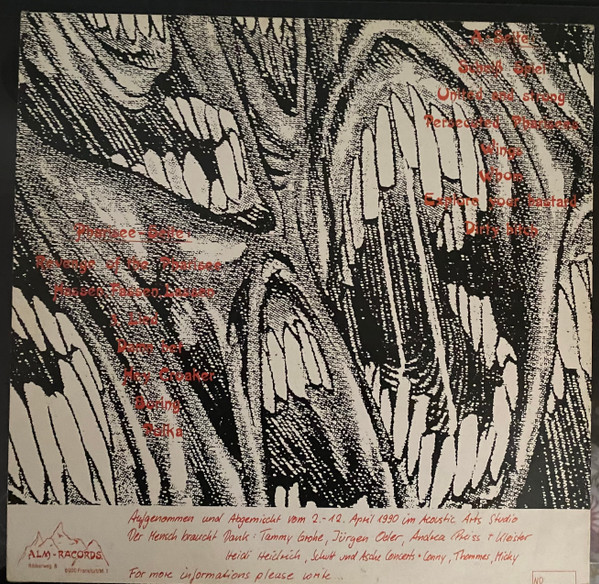 A-Seite
Scheiß Spiel
United and strong
Persecuted Pharisees
Wings
Whore
Explore your bastard
Dirty bitch
Pharisee-Seite
Revenge of the Pharisee
Hausen Possen Lausen
Line
Damn
Mrs Croaker
Buring
Polka
Aufgenommen und Abgemischt vom 2.-12. April 1990 im Acoustic Arts Studio
Der Mensch braucht Dank: Tammy Grohe, Jürgen Oder, Andrea Preiss + Kleister
Heidi Heidrich, Schutt und Asche Concerts + Conny, Thommes, Micky
For more informations please write
ALM-RACORDS
6000 Frankfurt/M. 1
NO